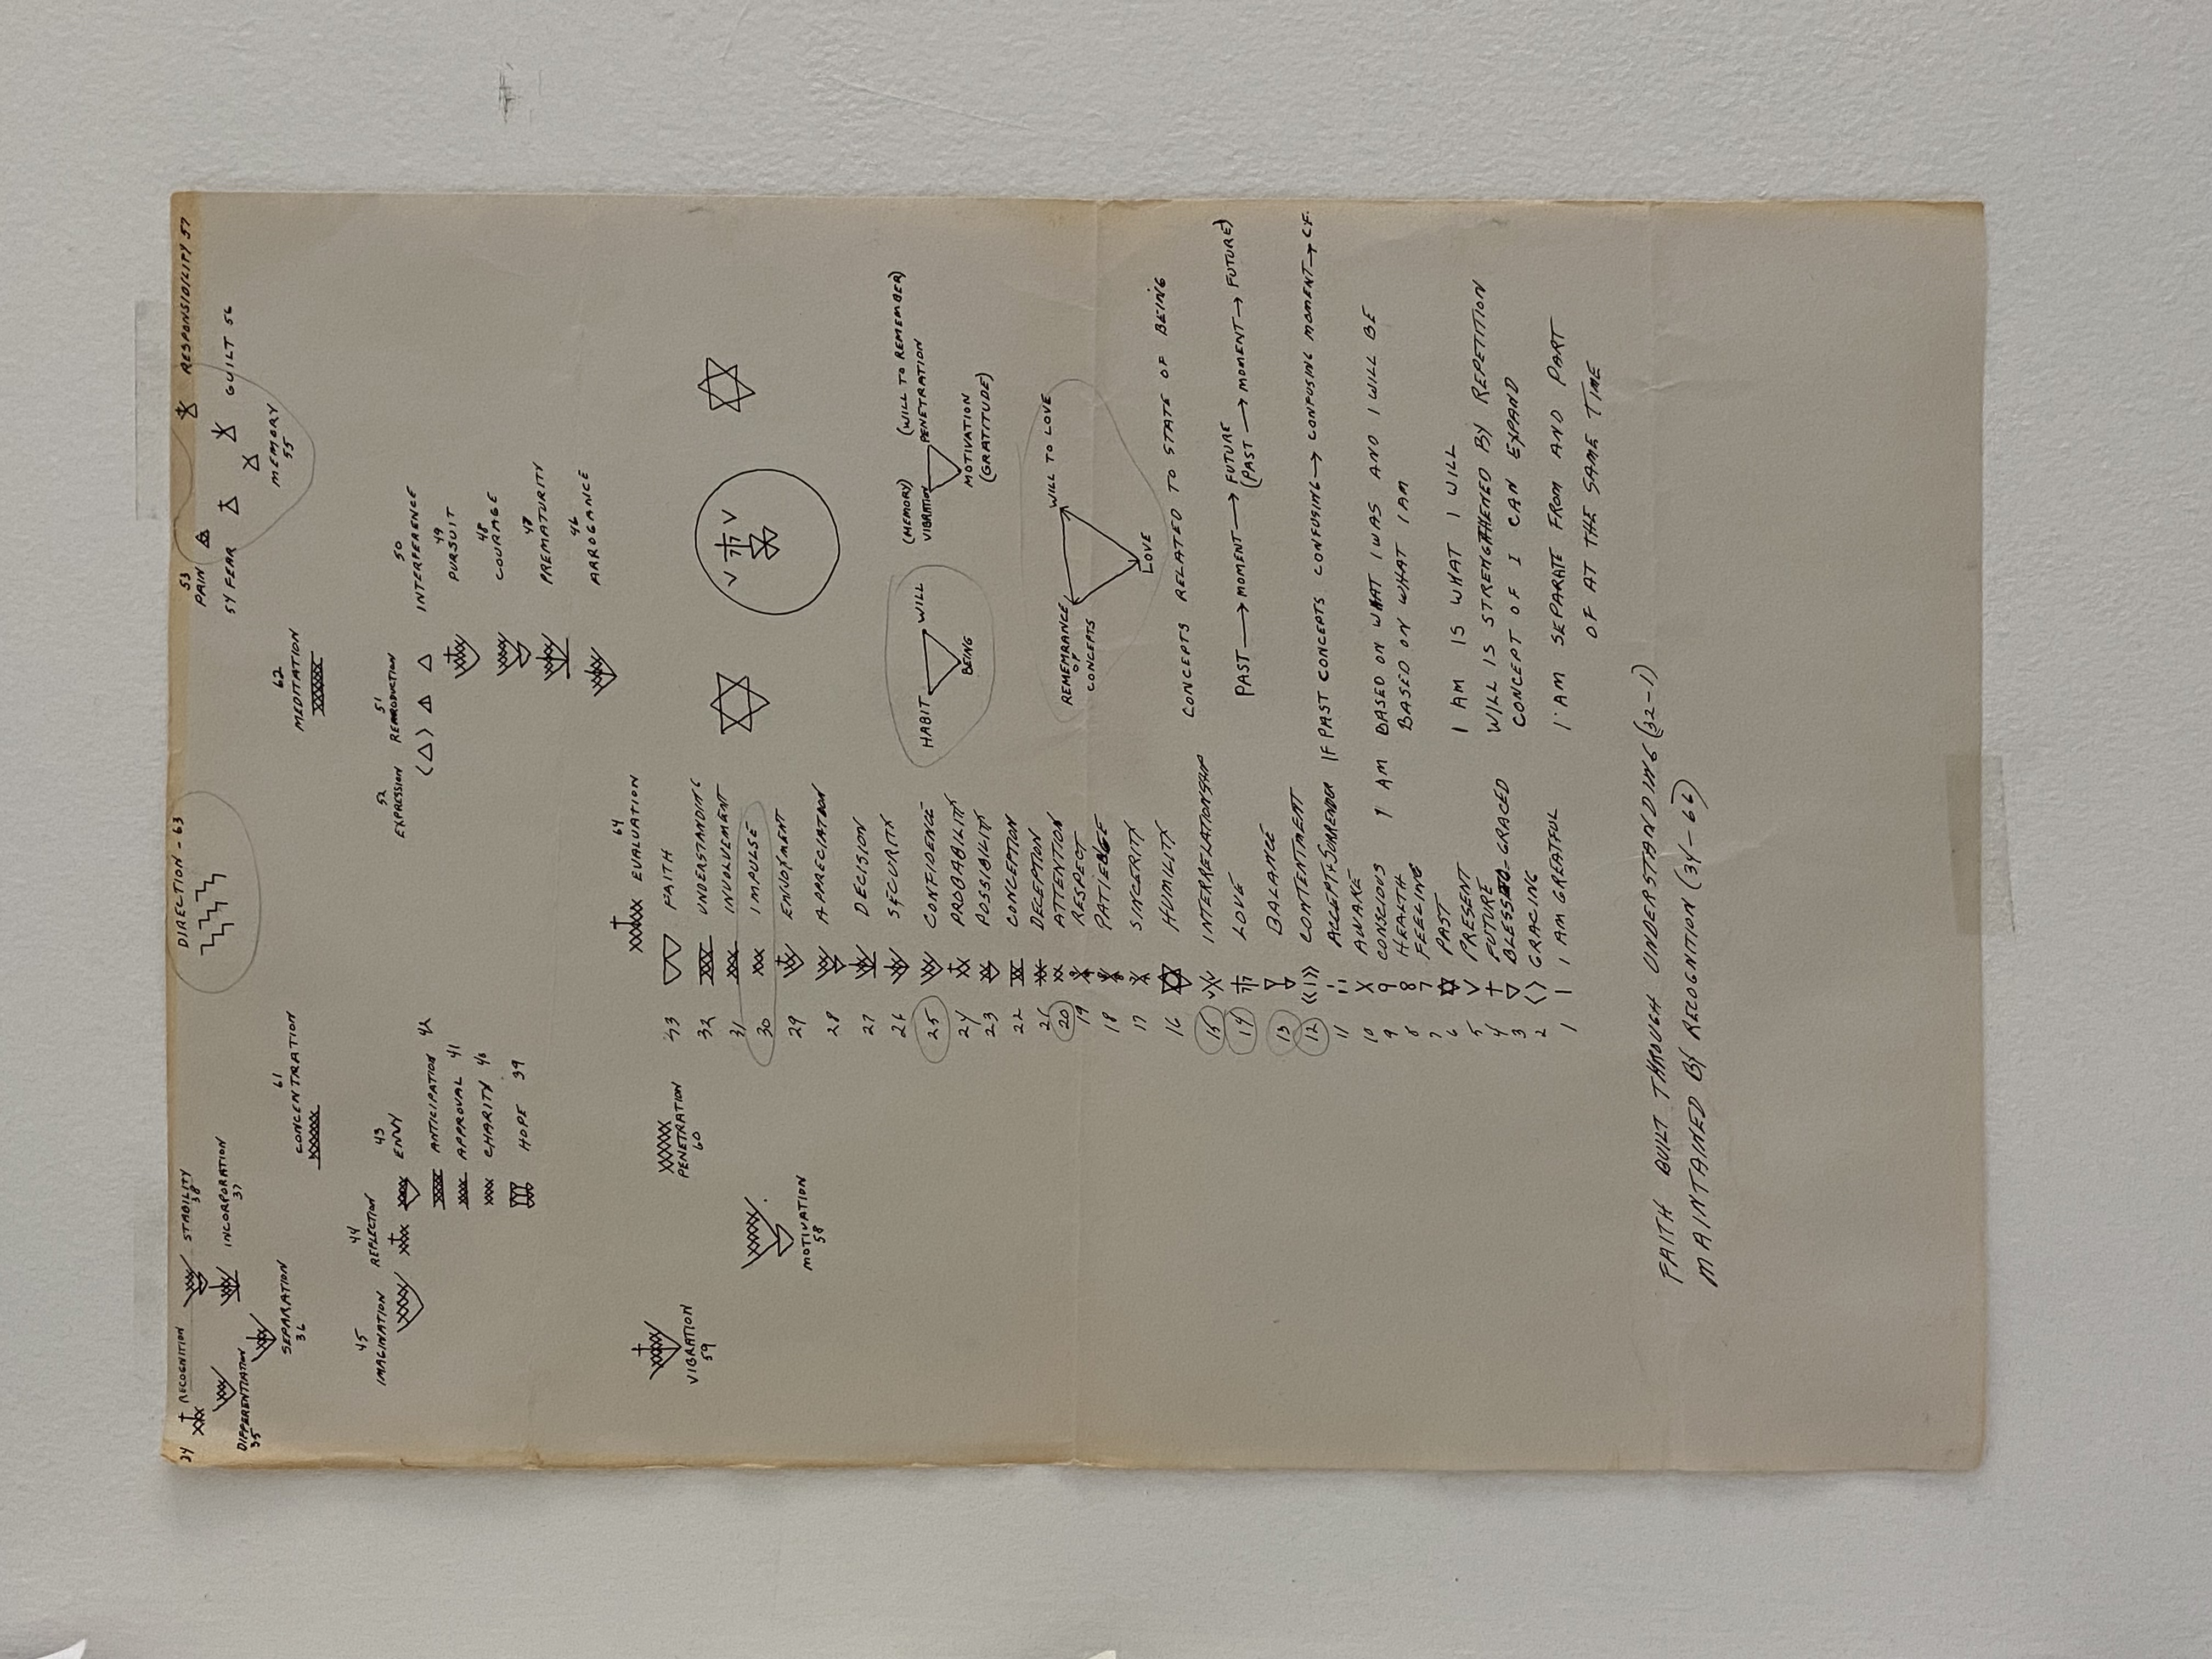 34 RECOGNITION
DIFFERENTIATION
35
SEPARATION
36
INCORPORATION
37
STABILITY
38
DIRECTION - 63
53
PAIN
54 FEAR
MEMORY
55
GUILT 56
RESPONSIBILITY 57
61
CONCENTRATION
62
MEDITATION
45
IMAGINATION
44
REFLECTION
43
ENVY
ANTICIPATION 42
APPROVAL 41
CHARITY 40
HOPE 39
52
EXPRESSION
51
REPRODUCTION
50
INTERFERENCE
49
PURSUIT
48
COURAGE
47
PREMATURITY
46
ARROGANCE
64
EVALUATION
VIBRATION
59
MOTIVATION
58
PENETRATION
60
33 FAITH
32 UNDERSTANDING
31 INVOLVEMENT
30 IMPULSE
29 ENJOYMENT
28 APPRECIATION
27 DECISION
26 SECURITY
25 CONFIDENCE
24 PROBABILITY
23 POSSIBILITY
22 CONCEPTION
21 DECEPTION
20 ATTENTION
19 RESPECT
18 PATIENCE
17 SINCERITY
16 HUMILITY
15 INTERRELATIONSHIP
14 LOVE
13 BALANCE
12 CONTENTMENT
11 ACCEPT + SURRENDER
10 X AWAKE
9 9 CONSCIOUS
8 8 HEALTH
7 7 FEELING
6 PAST
5 PRESENT
4 FUTURE
3 BLESSED - GRACED
2 GRACING
1 I I AM GREATFUL
HABIT
WILL
BEING
(MEMORY)
VIBRATION
(WILL TO REMEMBER)
PENETRATION
MOTIVATION
(GRATITUDE)
REMEMRANCE
OF
CONCEPTS
WILL TO LOVE
LOVE
CONCEPTS RELATED TO STATE OF BEING
PAST → MOMENT → FUTURE
(PAST → MOMENT → FUTURE)
IF PAST CONCEPTS CONFUSING → CONFUSING MOMENT → C.F.
I AM BASED ON WHAT I WAS AND I WILL BE
BASED ON WHAT I AM
I AM IS WHAT I WILL
WILL IS STRENGTHENED BY REPETITION
CONCEPT OF I CAN EXPAND
I AM SEPARATE FROM AND PART
OF AT THE SAME TIME
FAITH BUILT THROUGH UNDERSTANDING (32-1)
MAINTAINED BY RECOGNITION (34-66)